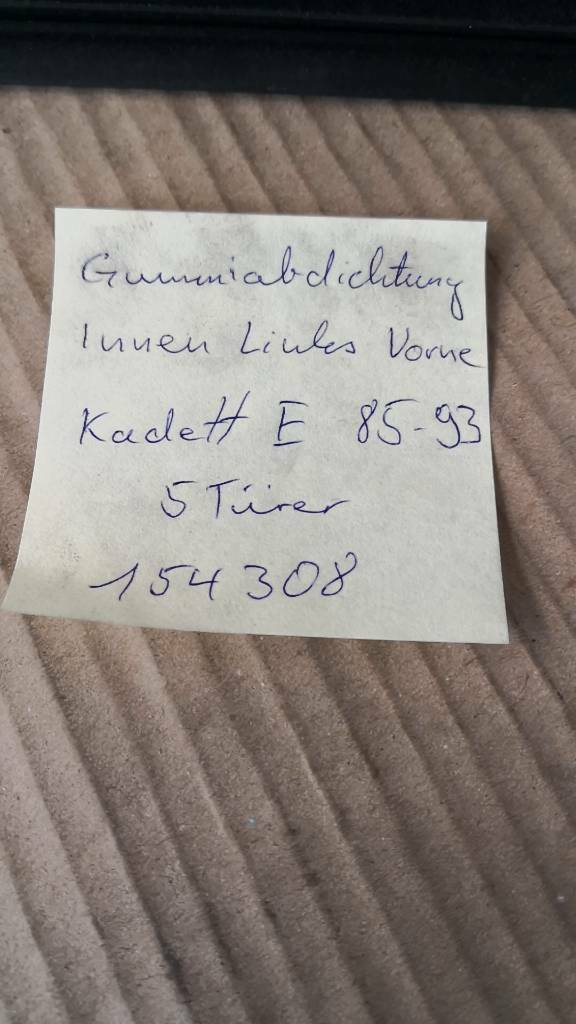 Gummiabdichtung
Innen Links Vorne
Kadett E 85-93
5 Türer
154308